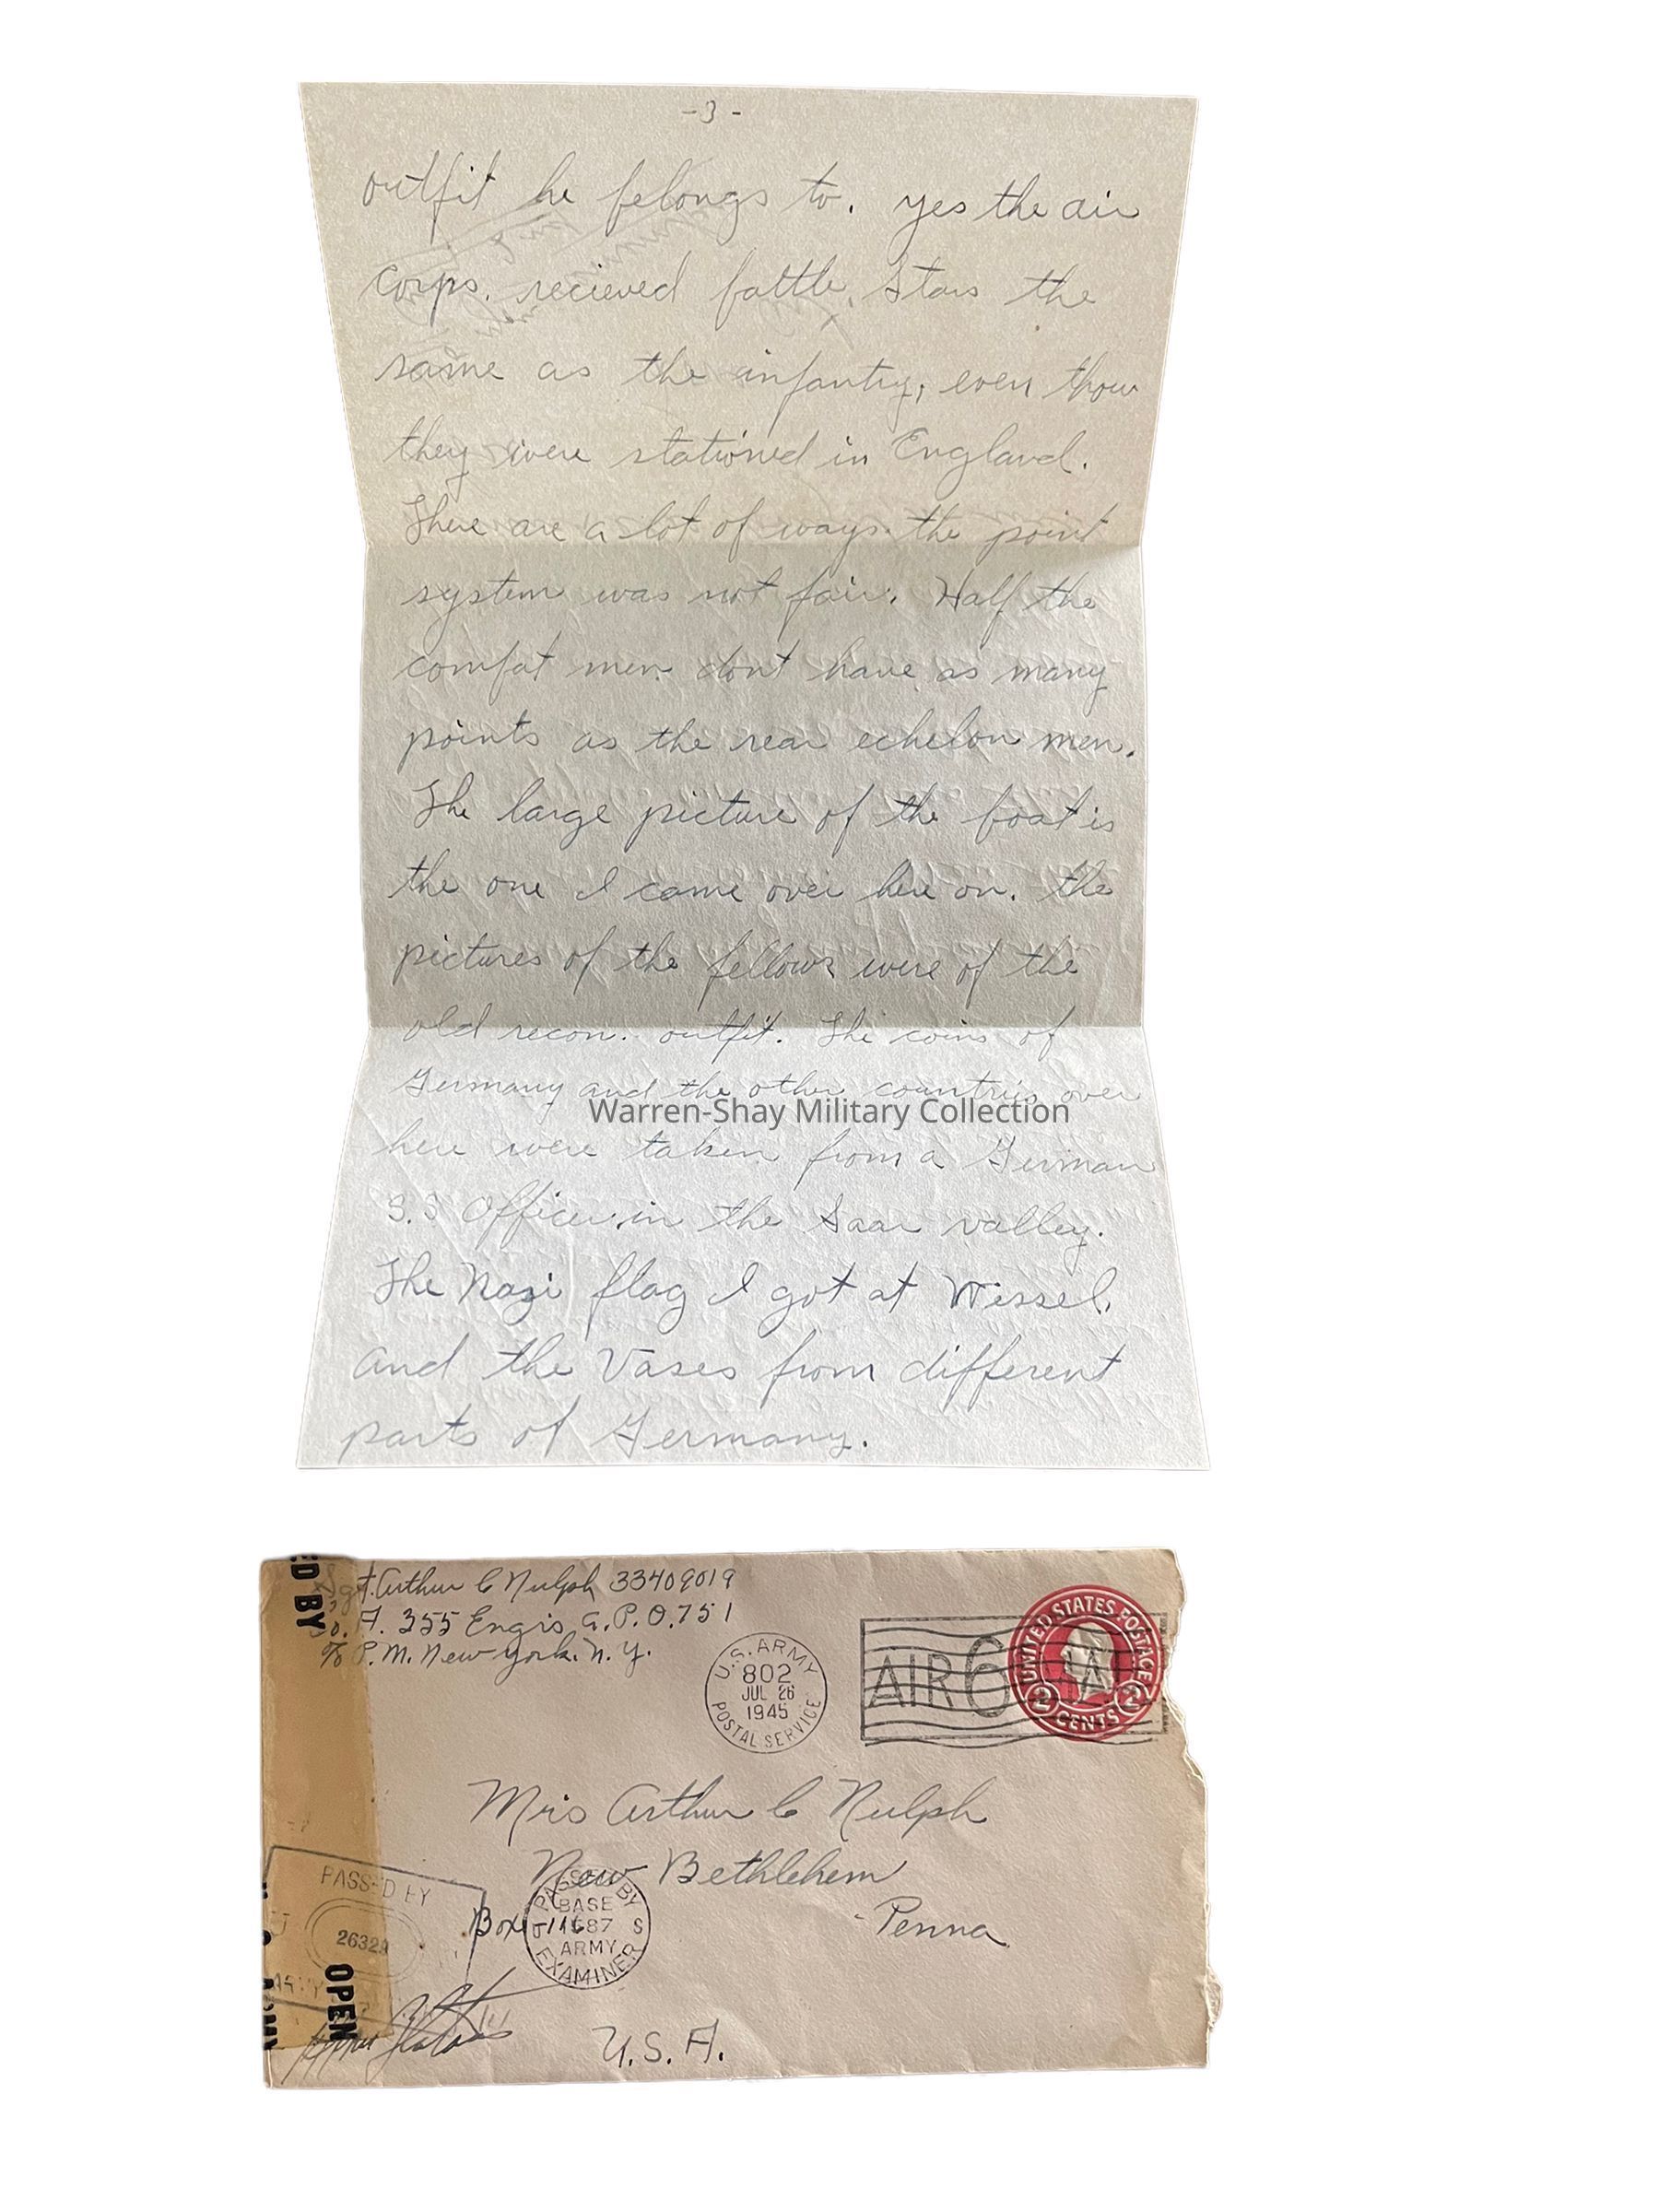 -3-
outfit he belongs to. yes the air
corps. recieved battle stars the
same as the infantry, even thow
they were stationed in England.
There are a lot of ways the point
system was not fair. Half the
combat men dont have as many
points as the rear echelon men.
The large picture of the boat is
the one I came over here on. the
pictures of the fellows were of the
old recon. outfit. The coins of
Germany and the other countries over
here were taken from a German
S.S Officer in the Saar valley.
The Nazi flag I got at Wessel.
And the Vases from different
parts of Germany.
Warren-Shay Military Collection
ED BY
Sgt. Arthur C Nulph 33409019
Co. A. 355 Engrs A.P.O. 751
c/o P.M. New York. N.Y.
U.S. ARMY
802
JUL 26
1945
POSTAL SERVICE
AIR 6
UNITED STATES POSTAGE
2 CENTS 2
Mrs Arthur C Nulph
New Bethlehem
Box-116
Penna
U.S.A.
PASSED BY
BASE
1687
ARMY
EXAMINER
PASSED BY
26329
ARMY
OPEN